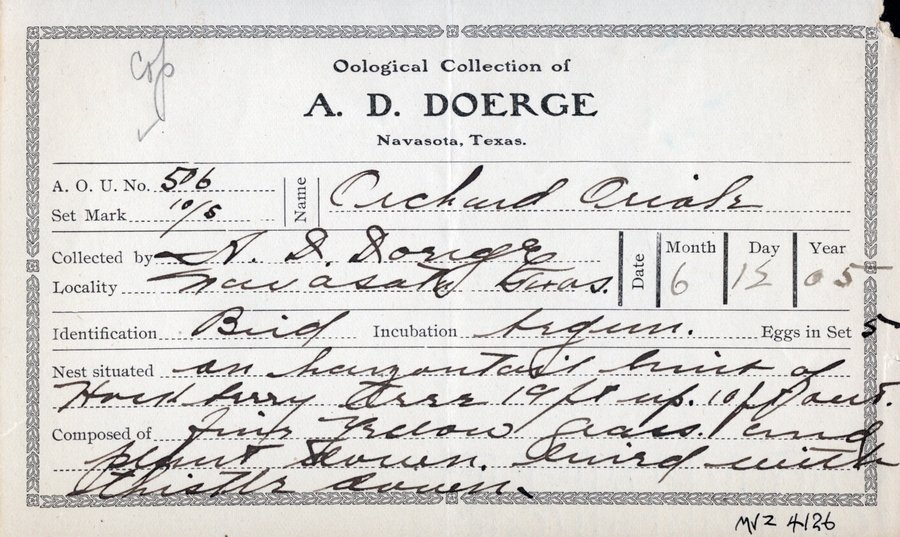 Cop
Oological Collection of
A. D. DOERGE
Navasota, Texas.
A. O. U. No. 506
Set Mark 10/5
Name Orchard Oriole
Collected by A. D. Doerge
Locality Navasota Texas.
Date Month 6 Day 15 Year 05
Identification Bird Incubation begun. Eggs in Set 5
Nest situated on horzontail limb of
Hackberry tree 19 ft up. 10 ft out.
Composed of fine yellow grass and
plant down. Lined with
thistle down.
MVZ 4126